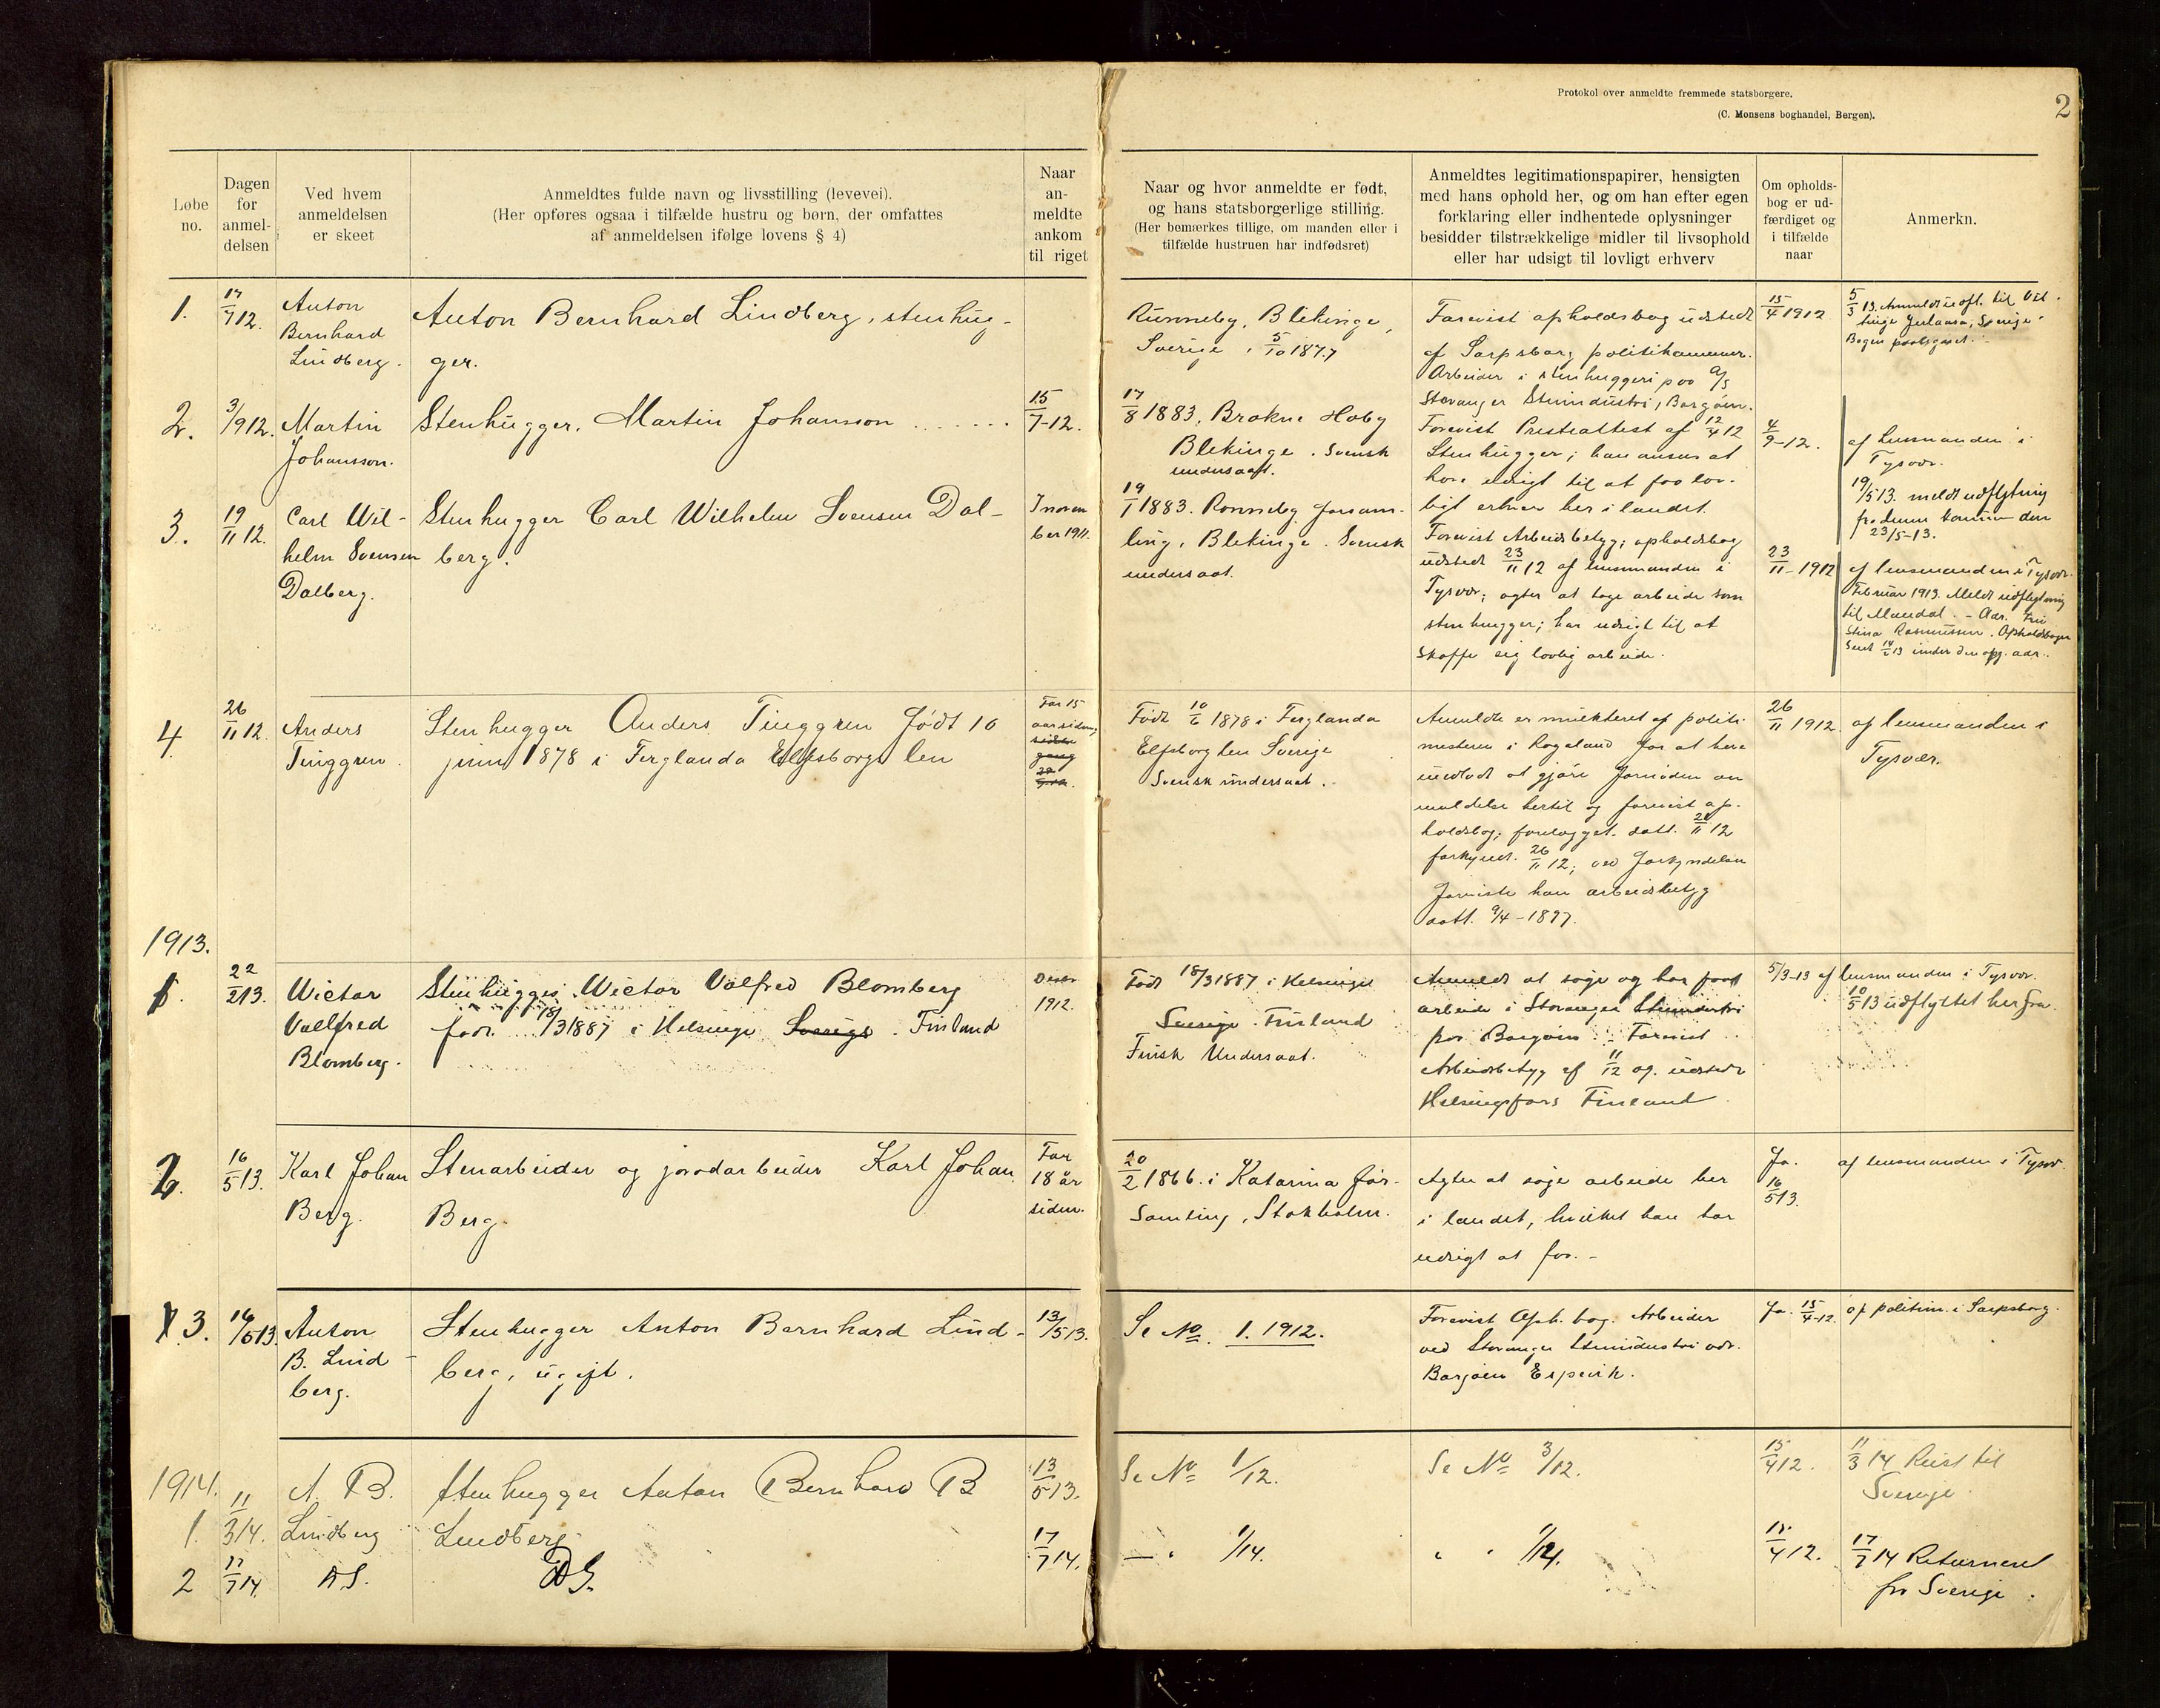 Protokol over anmeldte fremmede statsborgere.
(C. Monsens boghandel, Bergen).
2
Løbe no.
Dagen for anmel- delsen
Ved hvem anmeldelsen er skeet
Anmeldtes fulde navn og livsstilling (levevei).
(Her opføres ogsaa i tilfælde hustru og børn, der omfattes
af anmeldelsen ifølge lovens § 4)
Naar an- meldte ankom til riget
Naar og hvor anmeldte er født,
og hans statsborgerlige stilling.
(Her bemærkes tillige, om manden eller i
tilfælde hustruen har indfødsret)
Anmeldtes legitimationspapirer, hensigten
med hans ophold her, og om han efter egen
forklaring eller indhentede oplysninger
besidder tilstrækkelige midler til livsophold
eller har udsigt til lovligt erhverv
Om opholds- bog er ud- færdiget og i tilfælde naar
Anmerkn.
1.
17/7 12.
Anton
Bernhard
Lindberg.
Anton Bernhard Lindberg, stenhug-
ger.
Runneby, Blekinge,
Sverige, 5/10 1877
Forevist opholdsbog udstedt
af Sarpsborg politikammer.
Arbeider i stenhuggeri paa A/S
Stavanger Stenindustri, Borgøen.
15/4 1912
5/3 13. Anmeldt
Sverige.
2.
3/9 12.
Martin
Johansson.
Stenhugger, Martin Johansson
15/7-12.
17/8 1883, Brøkne Hoby
Blekinge. Svensk
undersaat.
Forevist Presteattest af 12/4 12
Stenhugger; han anses at
have udsigt til at faa lov-
ligt erhverv her i landet.
4/9-12.
af lensmanden i
Tysvær.
19/5 13. meldt udflytning
23/5-13.
3.
19/11 12.
Carl Wil-
helm Svensen
Dalberg.
Stenhugger Carl Wilhelm Svensen Dal-
berg.
I novem
ber 1911.
19/1 1883. Ronneby forsam-
ling, Blekinge. Svensk
undersaat.
Forevist Arbeidsbetyg; opholdsbog
udstedt 23/11 12 af lensmanden i
Tysvær; agter at tage arbeide som
stenhugger; har udsigt til at
skaffe sig lovlig arbeide.
23/11-1912
af lensmanden i Tysvær.
Februar 1913. Meldt udflytning
til Mandal. - Adr. Fru
Stina Rasmussen. Opholdsbogen
4
26/11 12.
Anders
Tinggren.
Stenhugger Anders Tinggren født 10
juni 1878 i Ferglanda Elfsborgs len
For 15
aar siden
Født 10/6 1878 i Ferglanda
Elfsborg len Sverige
Svensk undersaat.
Anmeldte er mulkteret af politi-
mesteren i Rogaland for at have
undladt at gjøre fornøden an
meldelse hertil og forevist op-
holdsbog; forelægget. datt. 21/11 12
forkyndt. 26/11 12; ved forkyndelsen
foreviste han arbeidsbetyg
datt. 9/4-1897.
26/11 1912.
af lensmanden i
Tysvær.
1913.
1.
22/2 13.
Wictor
Vallfred
Blomberg.
Stenhugger Wictor Valfred Blomberg
født 18/3 1887 i Helsinge Sverige. Finland
Decbr
1912.
Født 18/3 1887 i Helsinge
Sverige. Finland
Finsk Undersaat.
Anmeldt at søge og har faat
arbeide i Stavanger Stenindustri
paa Borgøen. Forevist
Arbeidsbetyg af 11/12 og. udstedt
Helsingfors Finland.
5/3-13 af lensmanden i Tysvær.
10/5 13 udflyttet herfra.
2.
16/5 13.
Karl Johan
Berg.
Stenarbeider og jordarbeider Karl Johan
Berg.
For
18 år
siden.
20/2 1866. i Katarina før-
samling, Stokholm.
Agter at søge arbeide her
i landet, hvilket han har
udsigt at faa. -
Ja.
16/5 13.
af lensmanden i Tysv.
3.
16/5 13.
Anton
B. Lind-
berg.
Stenhugger Anton Bernhard Lind-
berg, ugift.
13/5 13.
Se No. 1. 1912.
Forevist Oph. bog. Arbeider
ved Stavanger Stenindustri vdr.
Borgøen Espevik.
Ja. 15/4-12.
af politim. i Sarpsborg.
1914.
1.
11/3 14.
A. B.
Lindberg
Stenhugger Anton Bernhard B
Lindberg.
13/5 13.
Se No 1/12.
Se No 3/12.
15/4 12.
11/3 14 Reist til
Sverige
2
17/7 14.
D S.
D S.
17/7 14.
— " 1/14.
" " 1/14.
15/4 12.
17/7 14 Returneret
fra Sverige.